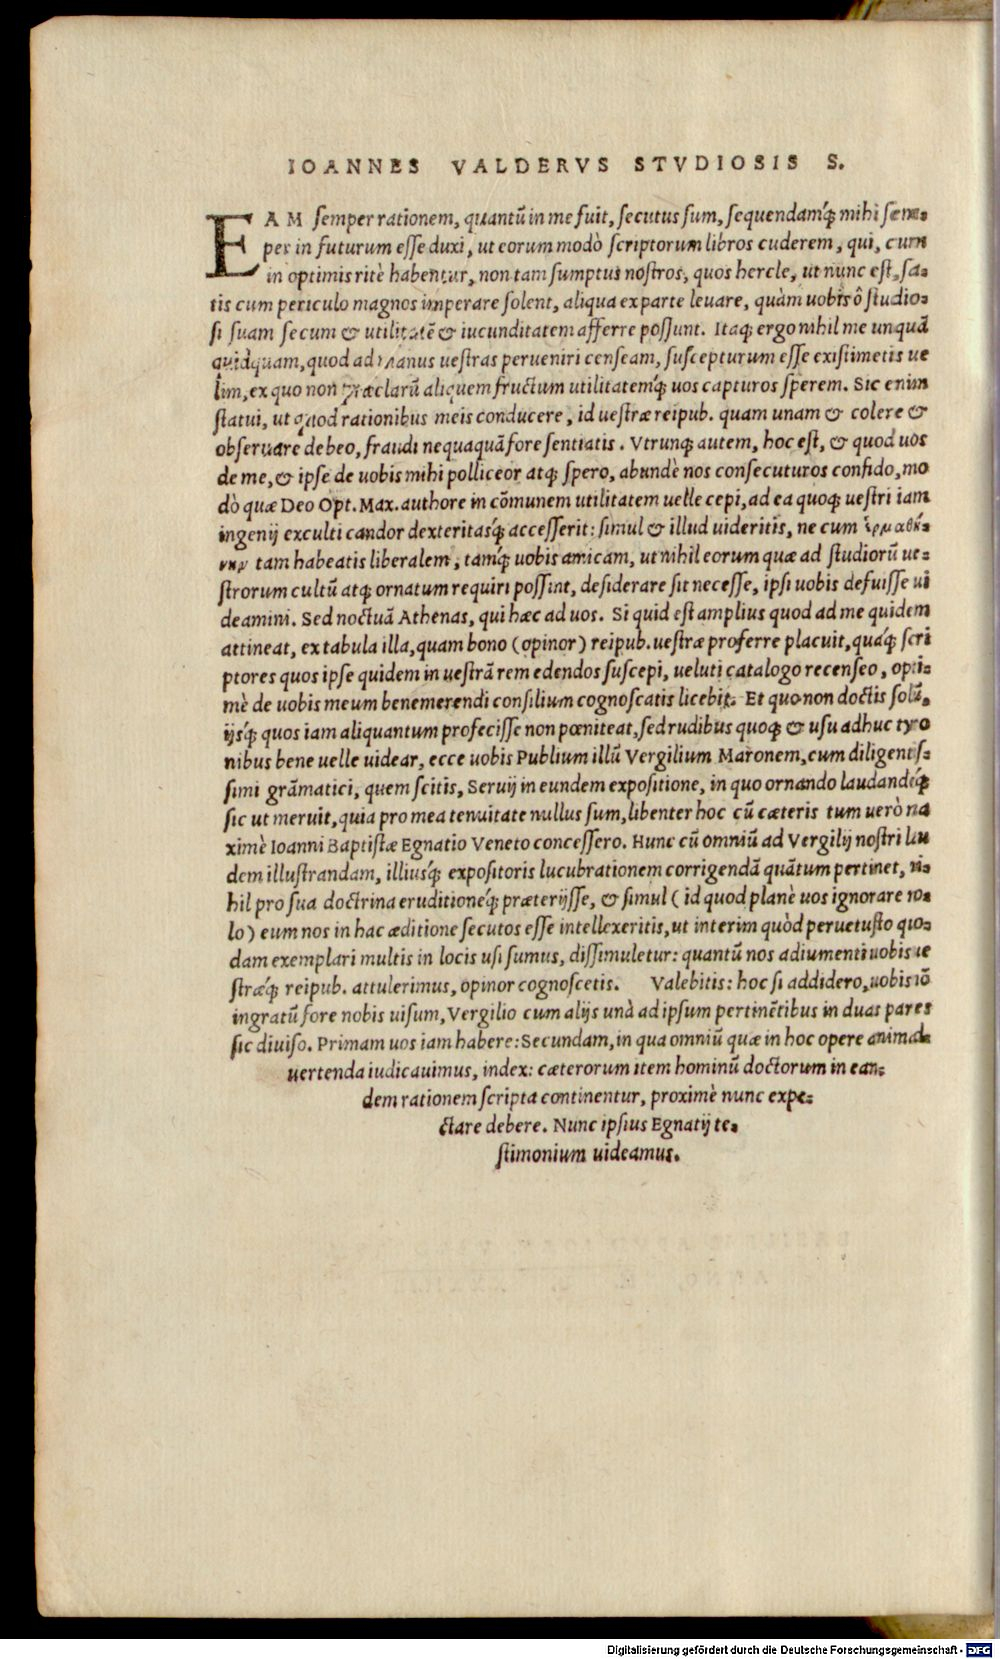 IOANNES VALDERVS STVDIOSIS S.
EAM semper rationem, quantũ in me fuit, secutus sum, sequendamq́; mihi sem-
per in futurum esse duxi, ut eorum modò scriptorum libros cuderem, qui, cum
in optimis ritè habentur, non tam sumptus nostros, quos hercle, ut nunc est, sa-
tis cum periculo magnos imperare solent, aliqua ex parte leuare, quàm uobis ô studio-
si suam secum & utilitatẽ & iucunditatem afferre possunt. Itaq; ergo nihil me unquã
quidquam, quod ad manus uestras perueniri censeam, suscepturum esse existimetis ue
lim, ex quo non præclarũ aliquem fructum utilitatemq́; uos capturos sperem. Sic enim
statui, ut quod rationibus meis conducere, id uestræ reipub. quam unam & colere &
obseruare debeo, fraudi nequaquã fore sentiatis. Vtrunq; autem, hoc est, & quod uos
de me, & ipse de uobis mihi polliceor atq; spero, abundè nos consecuturos confido, mo
dò quæ Deo Opt. Max. authore in cõmunem utilitatem uelle cepi, ad ea quoq; uestri iam
ingenij exculti candor dexteritasq́; accesserit: simul & illud uideritis, ne cum
tam habeatis liberalem, tamq́; uobis amicam, ut nihil eorum quæ ad studiorũ ue-
strorum cultũ atq; ornatum requiri possint, desiderare sit necesse, ipsi uobis defuisse ui
deamini. Sed noctuã Athenas, qui hæc ad uos. Si quid est amplius quod ad me quidem
attineat, ex tabula illa, quam bono (opinor) reipub. uestræ proferre placuit, quáq; scri
ptores quos ipse quidem in uestrã rem edendos suscepi, ueluti catalogo recenseo, opti-
mè de uobis meum benemerendi consilium cognoscatis licebit. Et quo non doctis solũ,
ijsq́; quos iam aliquantum profecisse non pœniteat, sed rudibus quoq; & usu adhuc tyro
nibus bene uelle uidear, ecce uobis Publium illũ Vergilium Maronem, cum diligentis-
simi grãmatici, quem scitis, Seruij in eundem expositione, in quo ornando laudandoq́;
sic ut meruit, quia pro mea tenuitate nullus sum, libenter hoc cũ cæteris tum uerò ma
ximè Ioanni Baptistæ Egnatio Veneto concessero. Hunc cũ omniũ ad Vergilij nostri lau
dem illustrandam, illiusq́; expositoris lucubrationem corrigendã quãtum pertinet, ni-
hil pro sua doctrina eruditioneq́; præterijsse, & simul (id quod planè uos ignorare no-
lo) eum nos in hac æditione secutos esse intellexeritis, ut interim quòd peruetusto quo-
dam exemplari multis in locis usi sumus, dissimuletur: quantũ nos adiumenti uobis ue
stræq́; reipub. attulerimus, opinor cognoscetis. Valebitis: hoc si addidero, uobis nõ
ingratũ fore nobis uisum, Vergilio cum alijs unà ad ipsum pertinẽtibus in duas partes
sic diuiso. Primam uos iam habere: Secundam, in qua omniũ quæ in hoc opere animad-
uertenda iudicauimus, index: cæterorum item hominũ doctorum in ean-
dem rationem scripta continentur, proximè nunc expe-
ctare debere. Nunc ipsius Egnatij te-
stimonium uideamus.
Digitalisierung gefördert durch die Deutsche Forschungsgemeinschaft - DFG